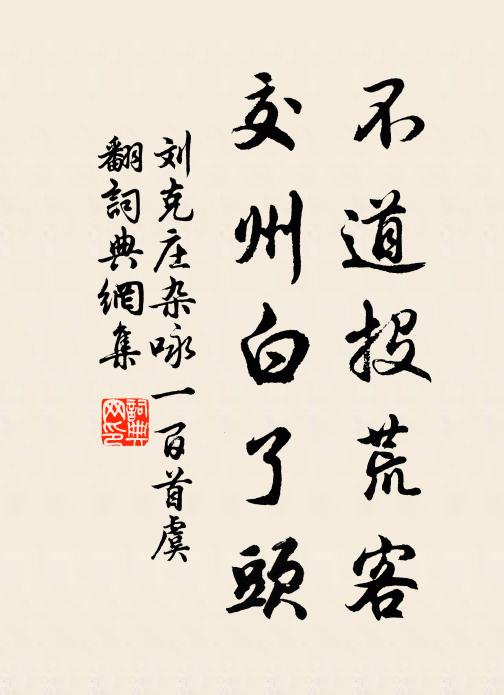 不道投荒客
交州白了頭
刘克庄杂咏一百首虞
翻詞典網集
詞典
网印